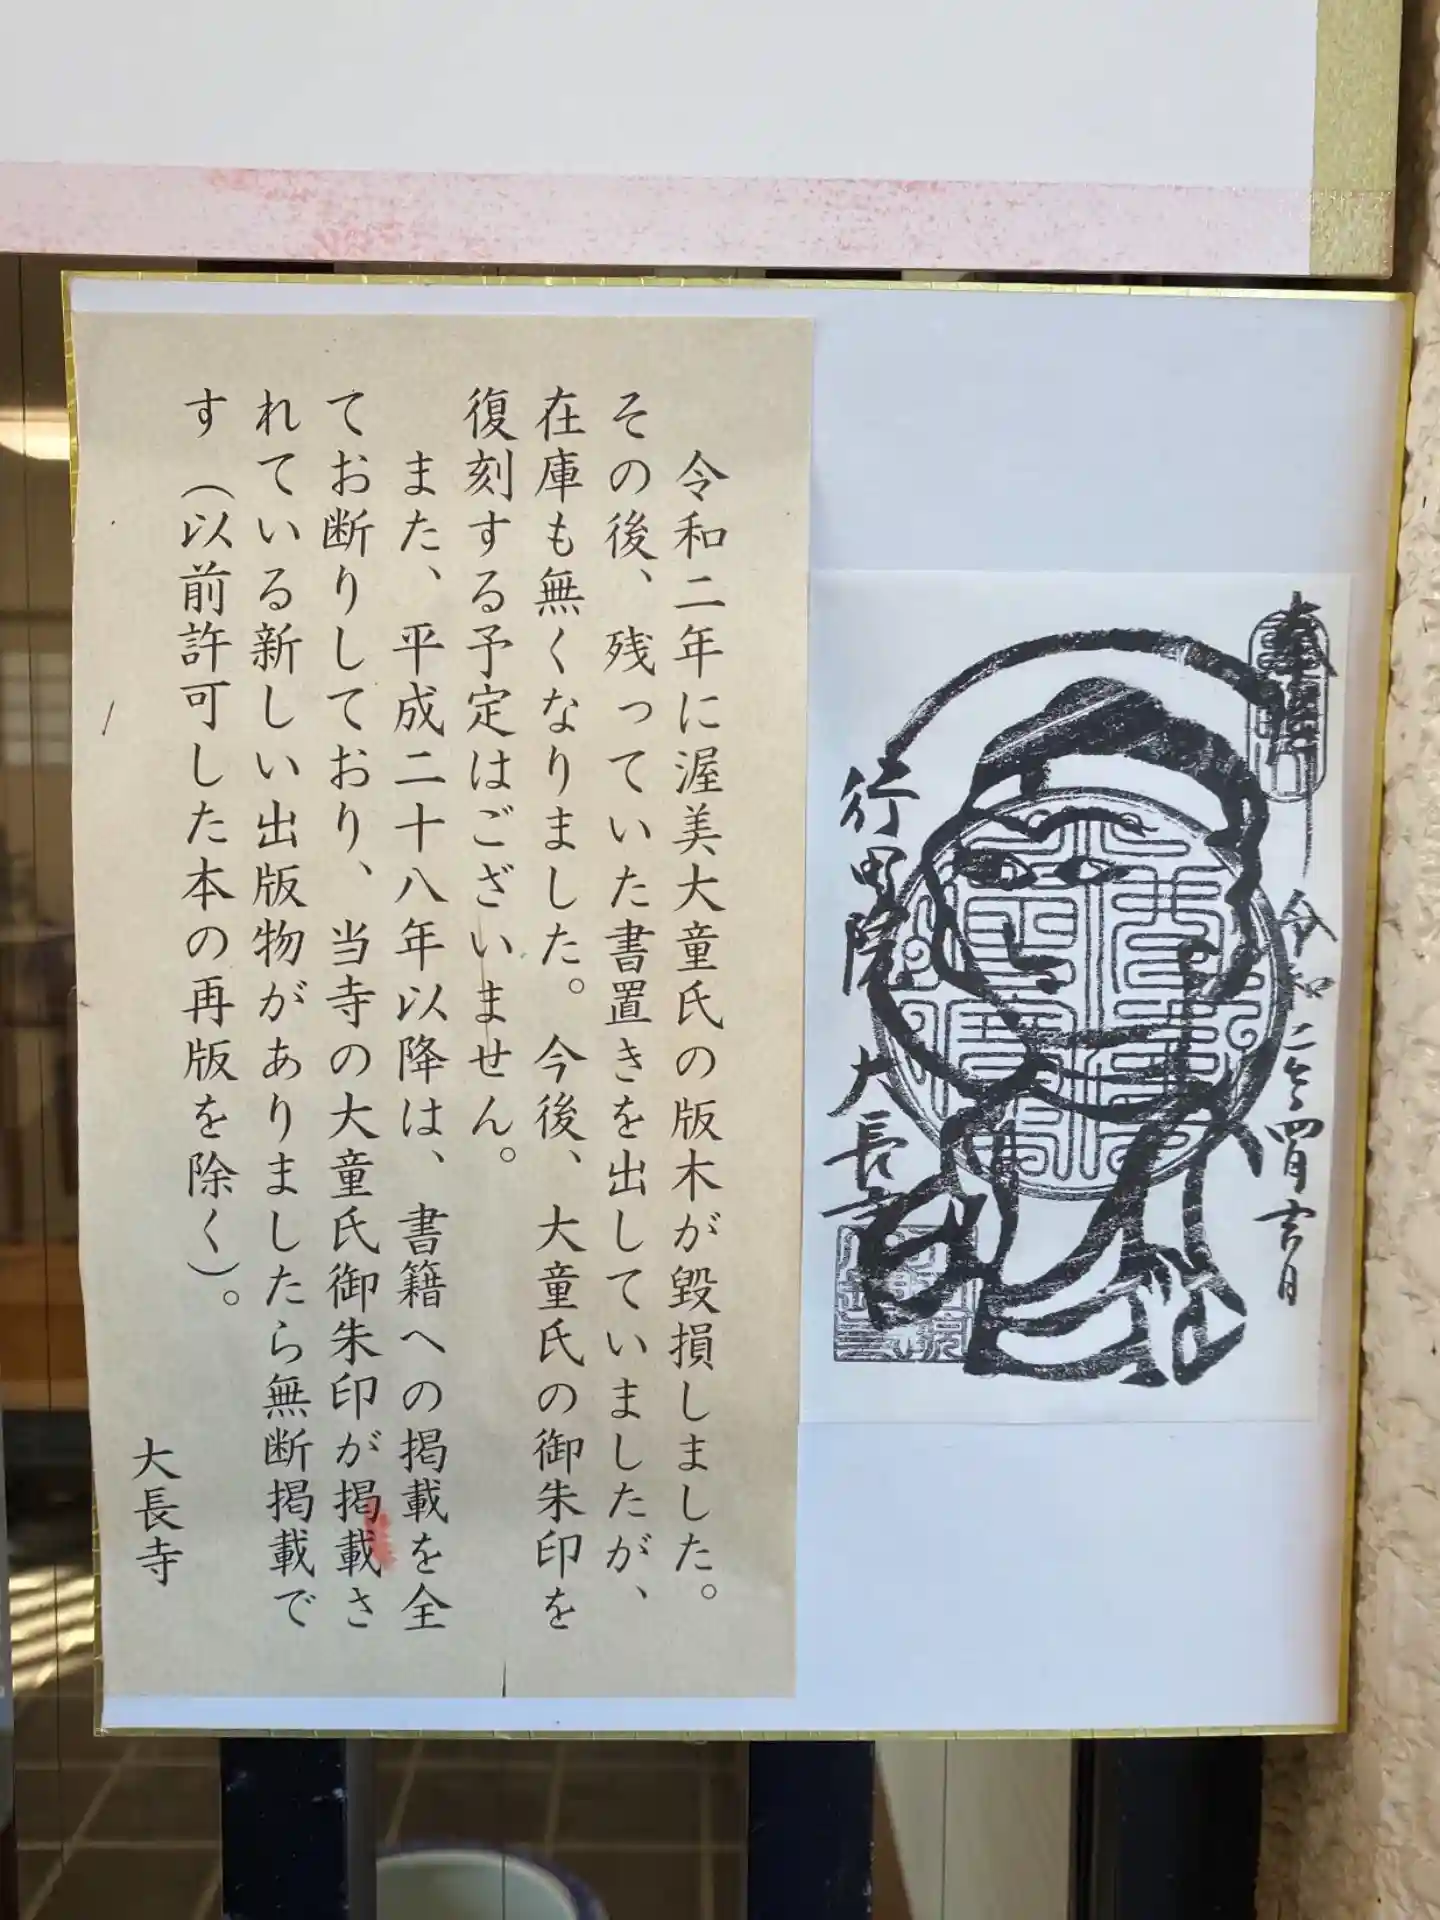 奉拝
令和二年四月吉日
行田院 大長寺
令和二年に渥美大童氏の版木が毀損しました。
その後、残っていた書置きを出していましたが、
在庫も無くなりました。今後、大童氏の御朱印を
復刻する予定はございません。
また、平成二十八年以降は、書籍への掲載を全
てお断りしており、当寺の大童氏御朱印が掲載さ
れている新しい出版物がありましたら無断掲載で
す（以前許可した本の再版を除く）。
大長寺